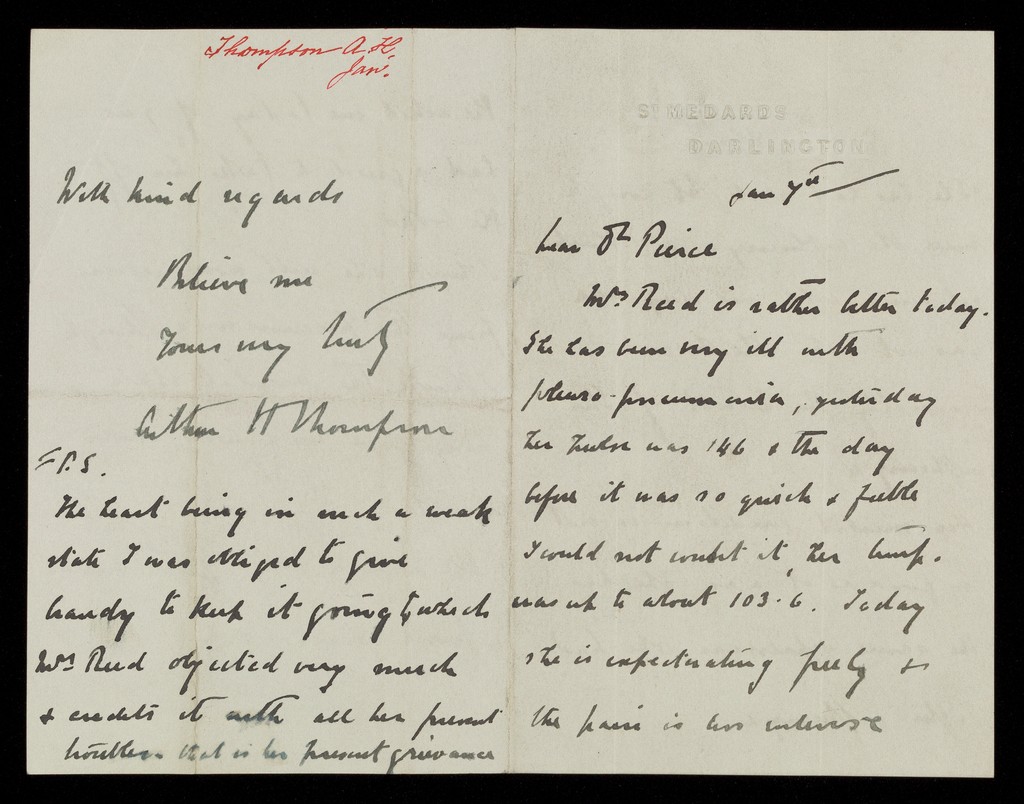 Thompson A. H.
Jan'.
With kind regards
Believe me
Yours very truly
Arthur H Thompson
P.S.
The heart being in such a weak
state I was obliged to give
brandy to keep it going, which
Mrs Reed objected very much
& credits it with all her present
troubles that is her present grievance
St MEDARDS
DARLINGTON
Jan 7th
Dear Dr Pierce
Mrs Reed is rather better today.
She has been very ill with
pleuro-pneumonia, yesterday
her pulse was 146 & the day
before it was so quick & feeble
I could not count it, her temp.
was up to about 103.6. Today
she is expectorating freely &
the pain is less intense